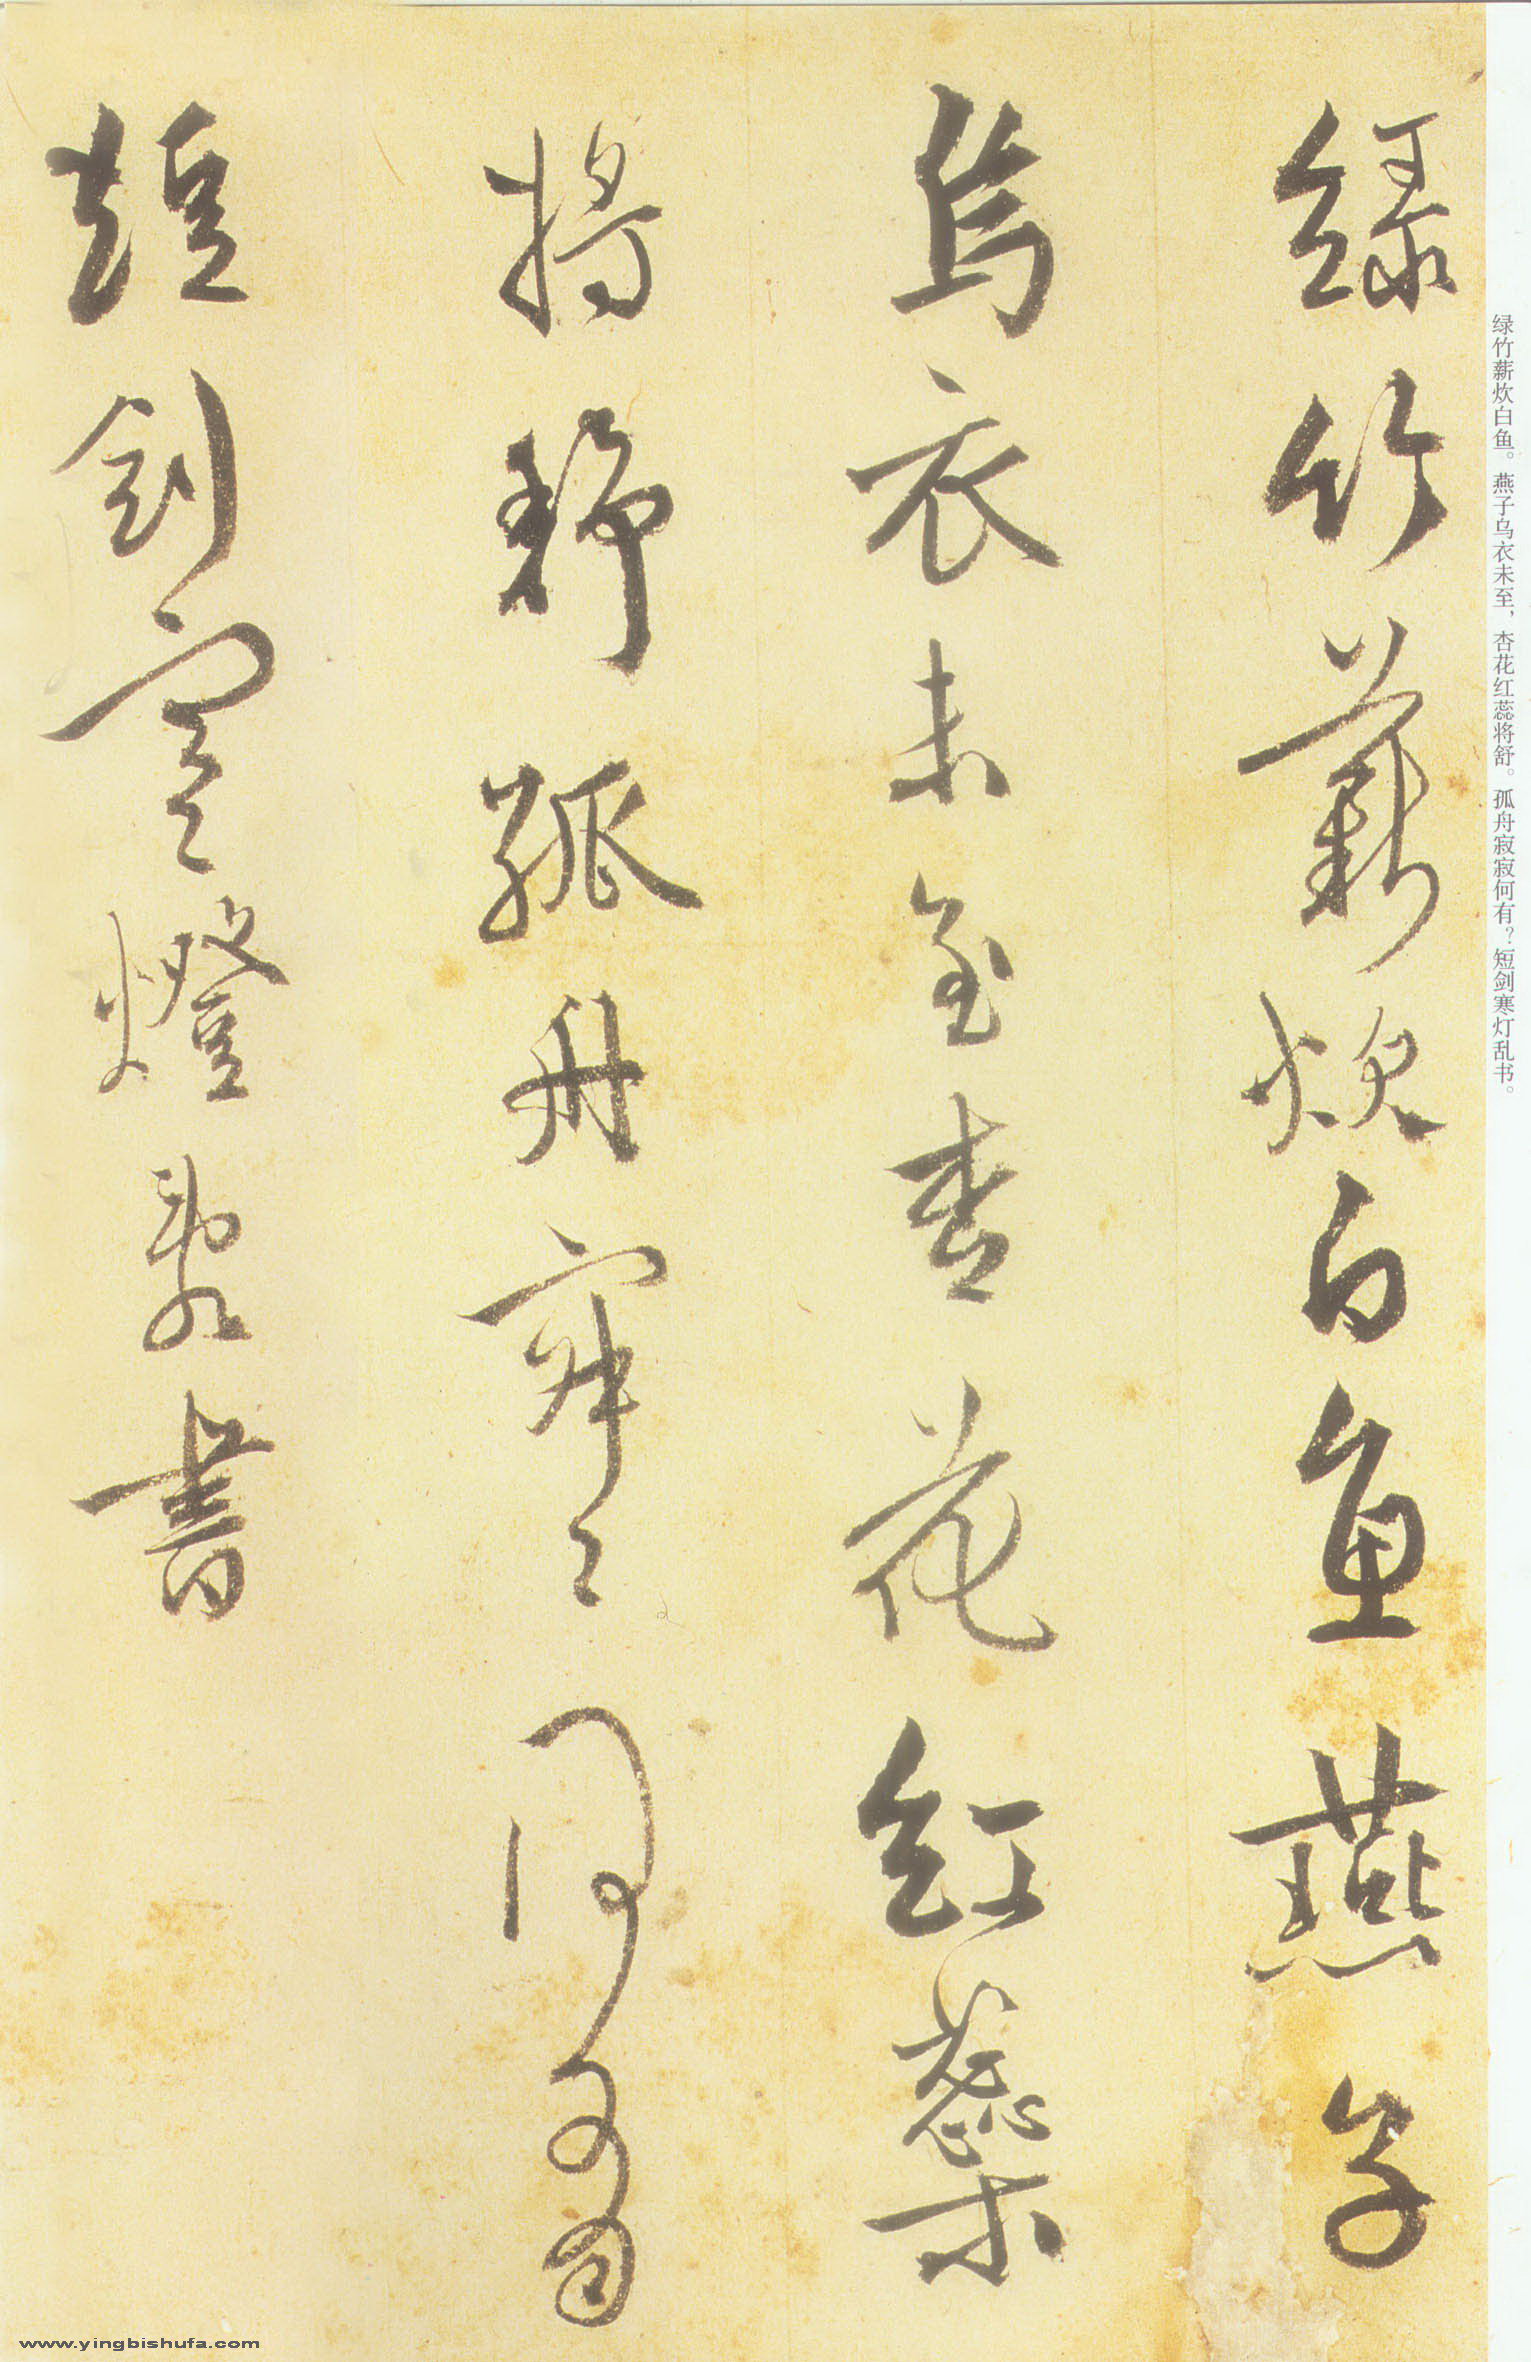 綠竹薪炊白魚燕子
烏衣未至杏花紅蕊
將舒孤舟寂〻何有
短劍寒燈亂書
绿竹薪炊白鱼。燕子乌衣未至，杏花红蕊将舒。孤舟寂寂何有？短剑寒灯乱书。
www.yingbishufa.com